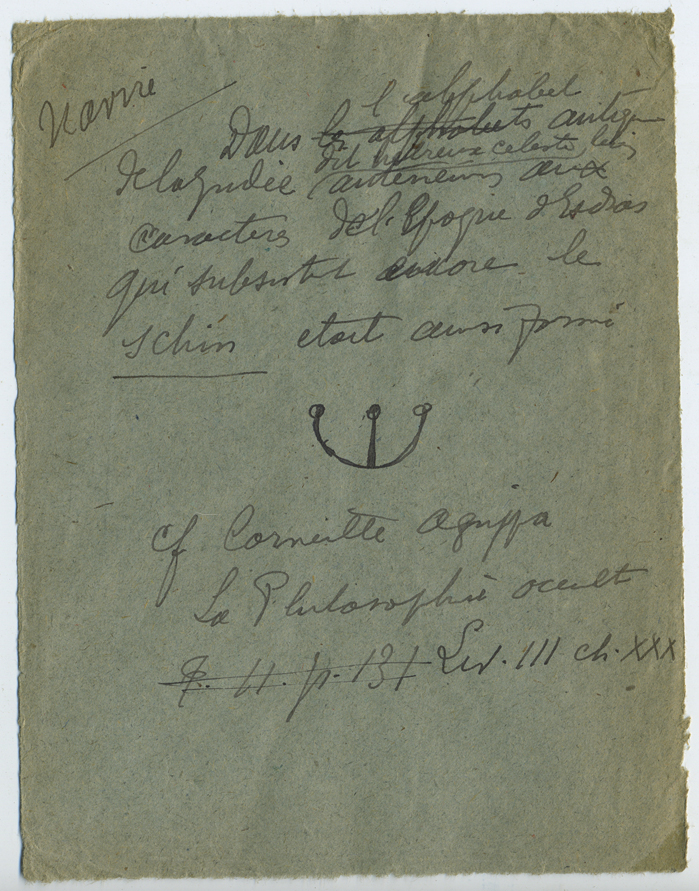 Navire
l'alphabet
Dans les alphabets antiq
dit hebreux celeste
de la Judée antérieurs aux
caracteres de l'Epoque d'Esdras
qui subsistent encore le
schin etait ainsi formé
cf Corneille Agrippa
La Philosophie occult
T. II. p. 131 Liv. III ch. XXX